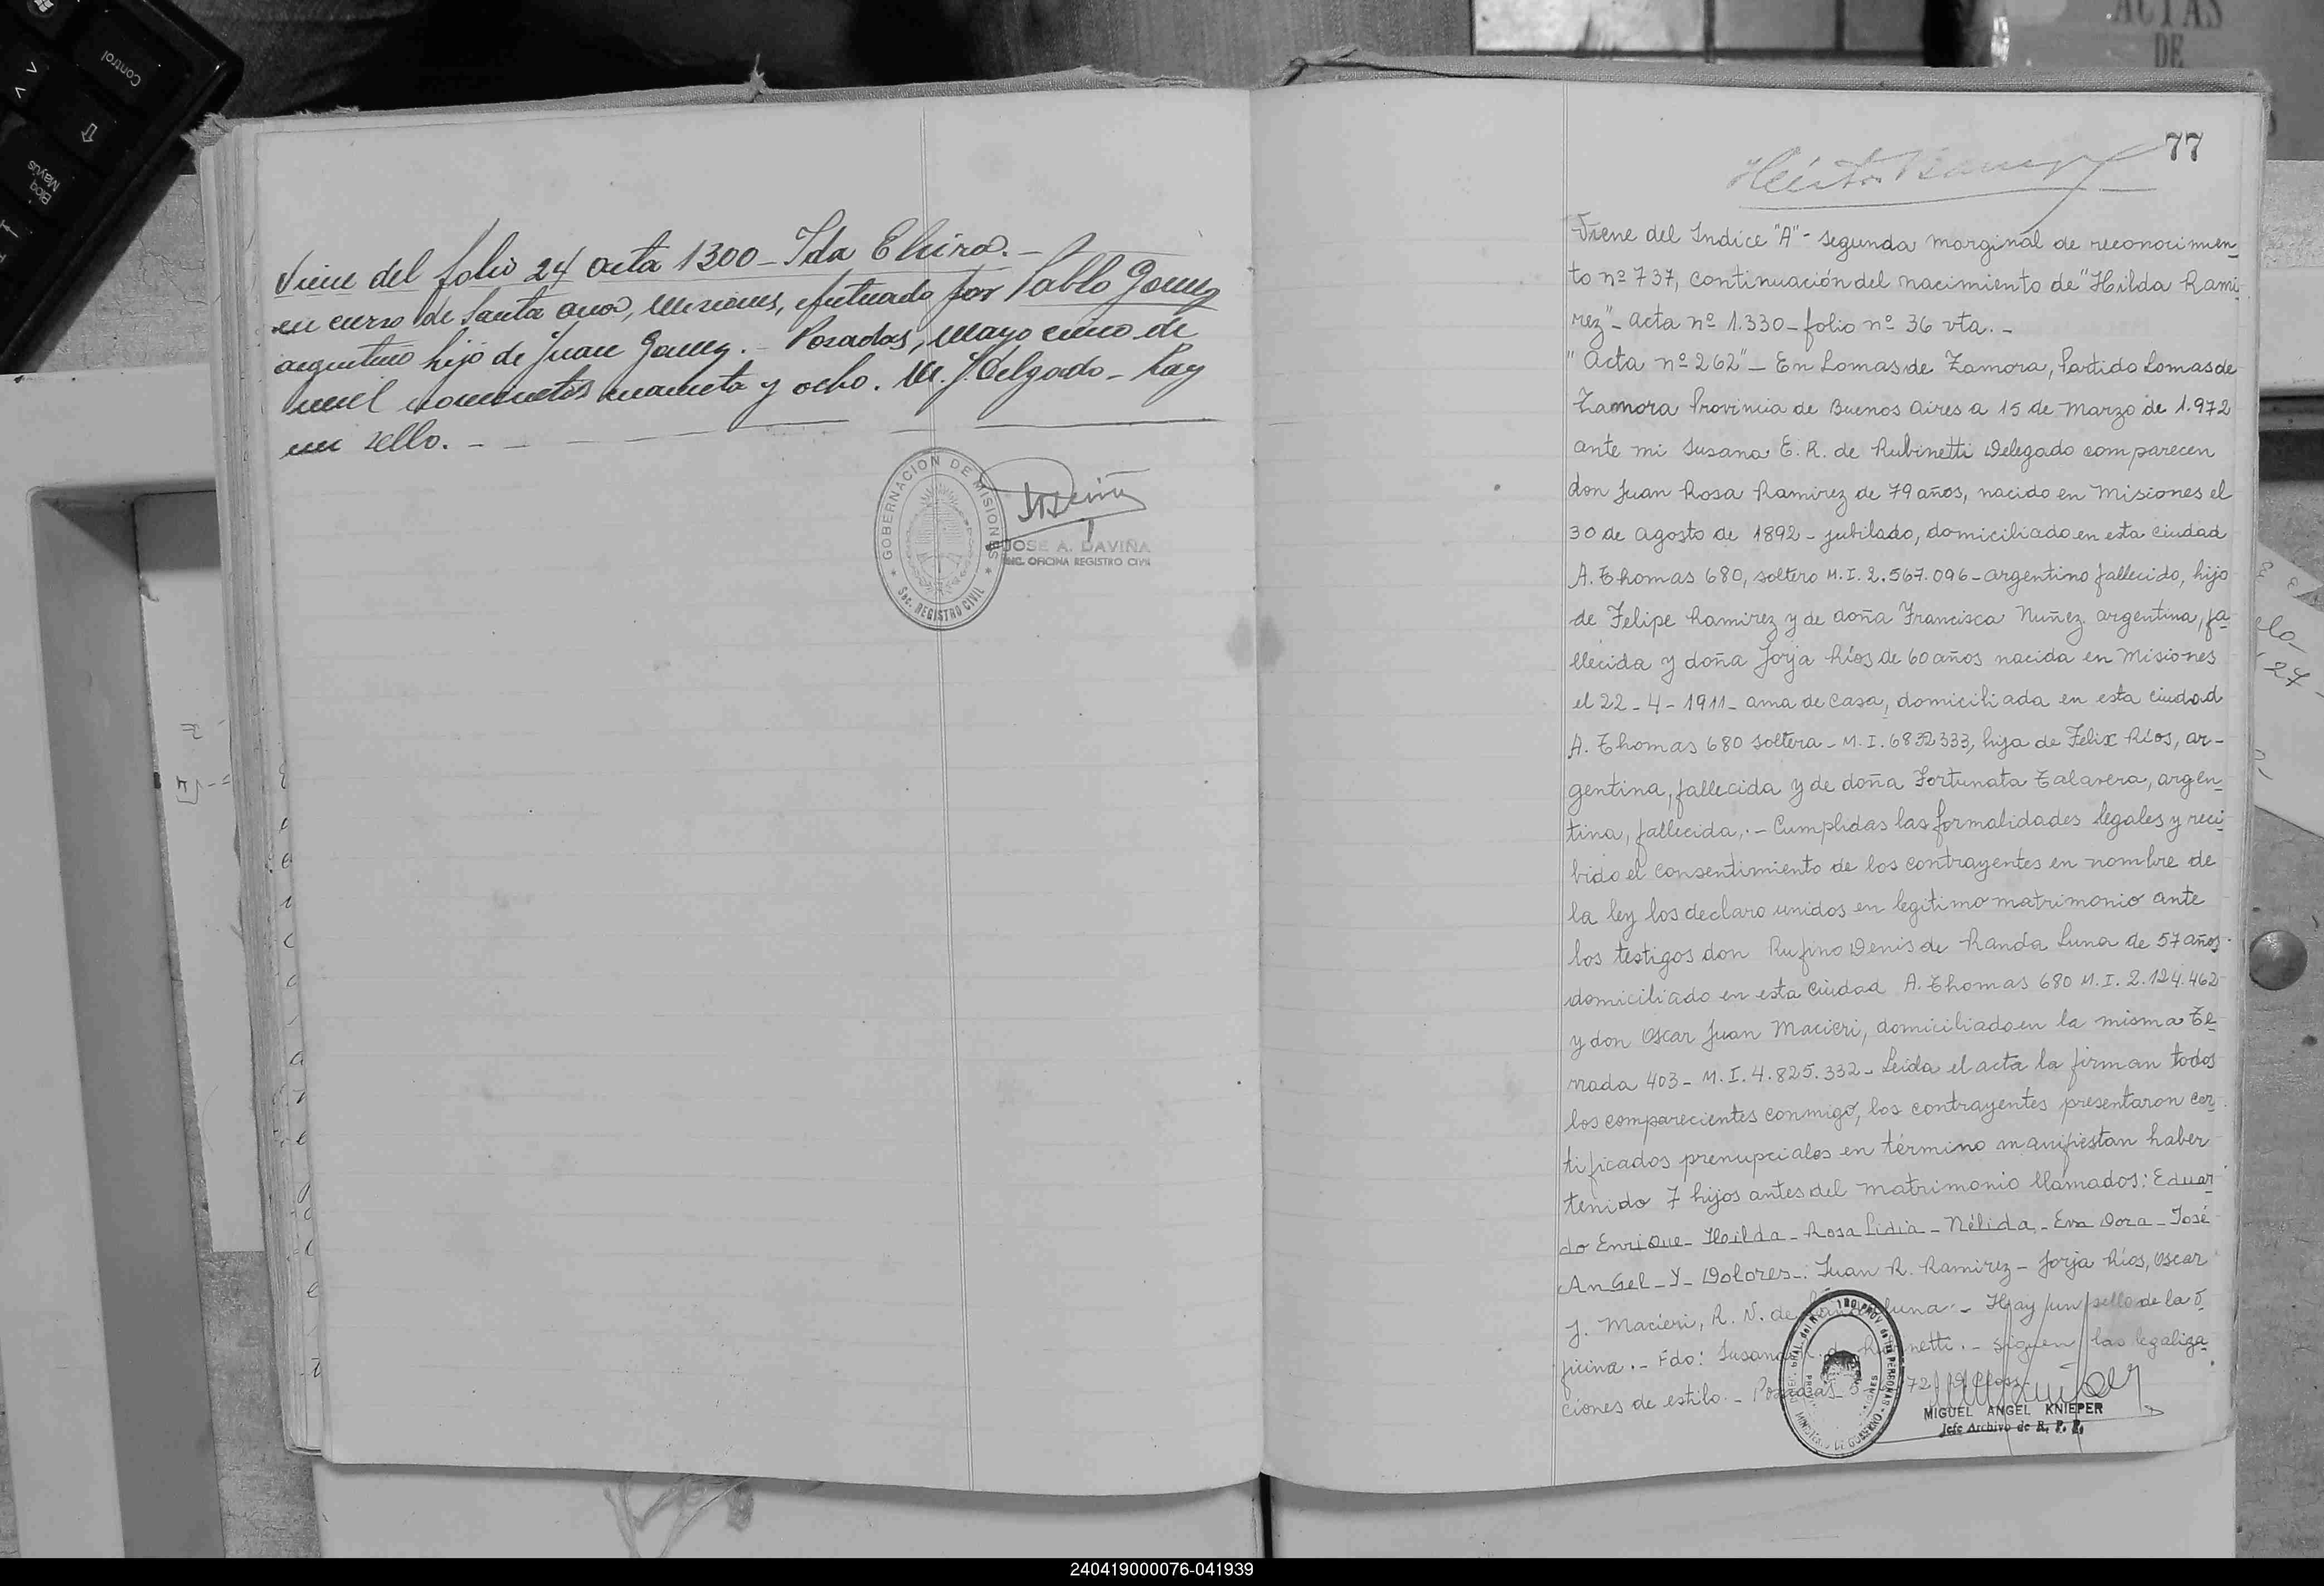 Control
Bloq
Mayús
ACTAS
DE
Viene del folio 24 acta 1300 - Ida Elvira. -
en curso de Santa Ana, Misiones, efectuado por Pablo Gomez
argentino hijo de Juan Gomez. - Posadas, Mayo cinco de
mil novecientos cuarenta y ocho. M. J. Delgado - Hay
un sello. - -
GOBERNACION DE MISIONES
Sec. REGISTRO CIVIL
JOSE A. DAVIÑA
ENC. OFICINA REGISTRO CIVIL
77
Viene del Indice "A" - segunda marginal de reconocimien_
to nº 737, continuación del nacimiento de "Hilda Rami_
rez" - acta nº 1.330 - folio nº 36 vta. -
"Acta nº 262" - En Lomas de Zamora, Partido Lomas de
Zamora Provincia de Buenos Aires a 15 de Marzo de 1.972
ante mi Susana E. R. de Rubinetti Delegado comparecen
don Juan Rosa Ramirez de 79 años, nacido en Misiones el
30 de Agosto de 1892 - jubilado, domiciliado en esta ciudad
A. Thomas 680, soltero M.I. 2.567.096 - argentino fallecido, hijo
de Felipe Ramirez y de doña Francisca Nuñez argentina, fa_
llecida y doña Jorja Ríos de 60 años nacida en Misiones
el 22 - 4 - 1911 - ama de casa, domiciliada en esta ciudad
A. Thomas 680 soltera - M.I. 6832333, hija de Felix Ríos, ar-
gentina, fallecida y de doña Fortunata Talavera, argen_
tina, fallecida. - Cumplidas las formalidades legales y reci_
bido el consentimiento de los contrayentes en nombre de
la ley los declaro unidos en legitimo matrimonio ante
los testigos don Rufino Denis de Randa Luna de 57 años
domiciliado en esta ciudad A. Thomas 680 M.I. 2.124.462
y don Oscar Juan Macieri, domiciliado en la misma Te_
rrada 403 - M.I. 4.825.332 - Leida el acta la firman todos
los comparecientes conmigo, los contrayentes presentaron cer_
tificados prenupciales en término manifiestan haber
tenido 7 hijos antes del matrimonio llamados: Eduar_
do Enrique - Hilda - Rosa Lidia - Nélida - Eva Dora - José
Angel - Y - Dolores -. Juan R. Ramirez - Jorja Ríos, Oscar
J. Macieri, R. N. de Luna. - Hay un sello de la o_
ficina. - Fdo: Susana - siguen las legaliza_
ciones de estilo. - Posadas 72
MINISTERIO DE GOBIERNO
MIGUEL ANGEL KNIEPER
Jefe Archivo de R. P. P.
240419000076-041939